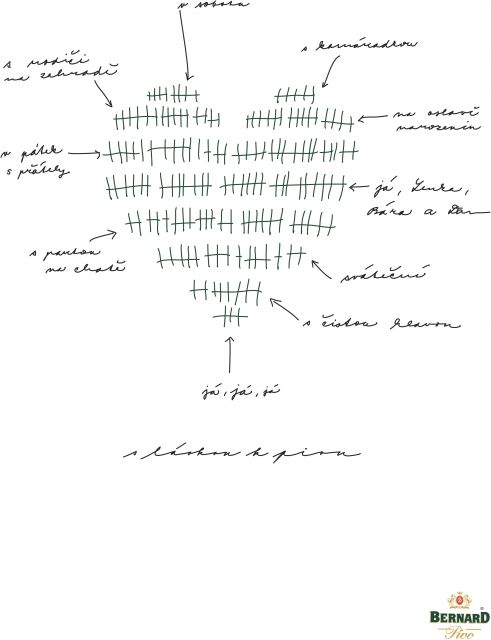 v sobotu
s kamarádkou
s rodiči
na zahradě
na oslavě
narozenin
v pátek
s přátely
já, Lenka,
Bára a Dan
s partou
na chatě
sváteční
s čistou hlavou
já, já, já
s láskou k pivu
BERNARD
Pivo